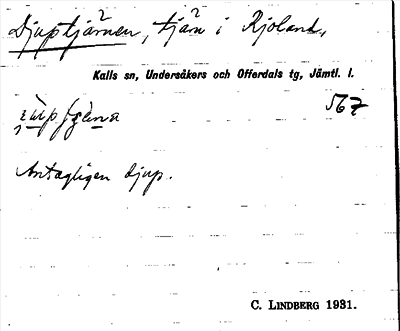 Djuptjärnen, tjärn i Kjoland,
Kalls sn, Undersåkers och Offerdals tg, Jämtl. l.
567
Antagligen djup.
C. LINDBERG 1931.